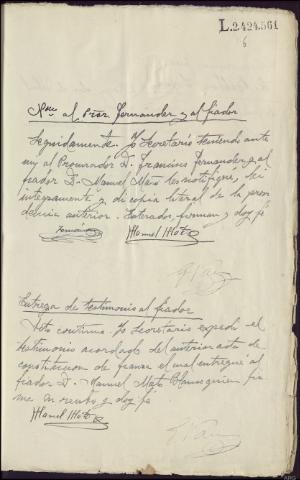 L.2.424.561
6
Non al Pror. Fernandez y al fiador
Seguidamente. Yo Secretario teniendo ante
mi al Procurador D. Francisco Fernandez y al
fiador D. Manuel Mato les notifiqué, lei
integramente y di copia literal de la provi
dencia anterior. Enterados, firman y doy fé
Fernandez Manuel Mato
Entrega de testimonio al fiador
Acto continuo. Yo Secretario expedi el
testimonio acordado del anterior auto de
constitucion de fianza el cual entregué al
fiador D. Manuel Mato
quien fir
ma su recibo y doy fé
Manuel Mato